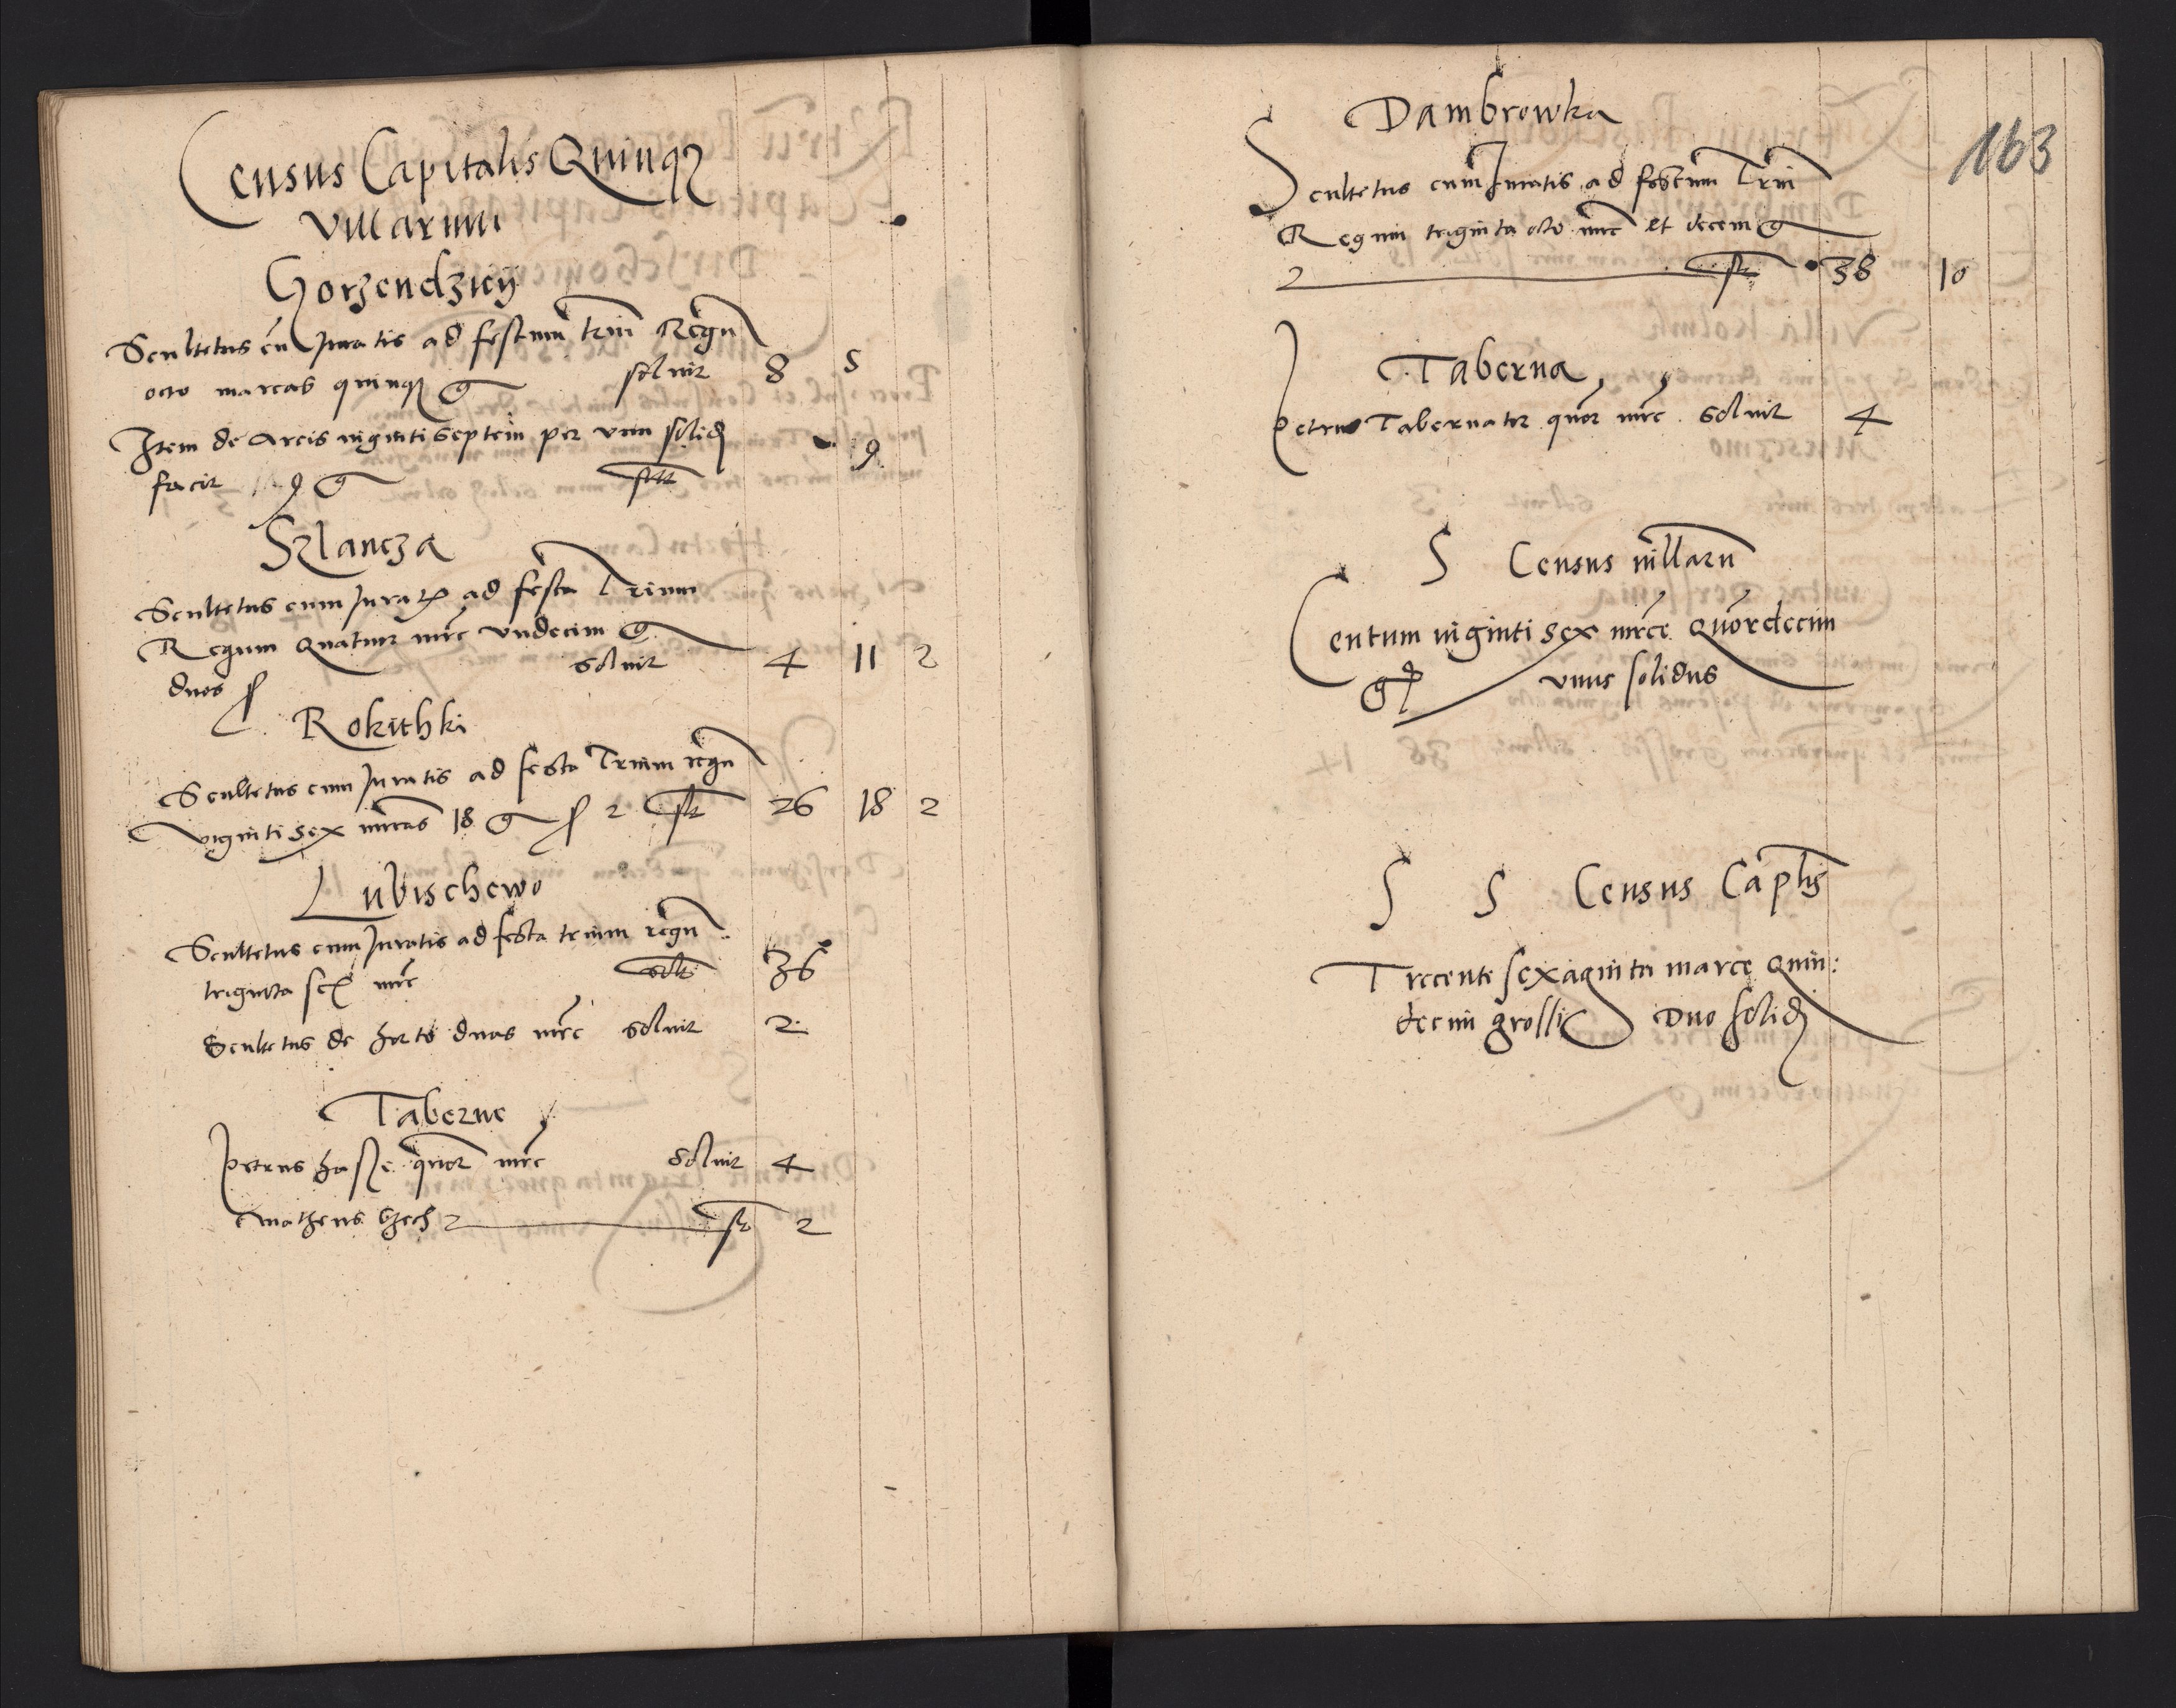 Census Capitalis Quinqꝫ
villarum
Gorzendzieÿ
Scultetus cū Juratis ad festum triū Regū
octo marcas quinqꝫ g soluit 8 5
Item de areis viginti septem per vnū solidū
facit 9 g solt 9
Szlancza
Scultetus cum Juratis ad festa Trium
Regum quatuor mrc vndecim g
duos ß soluit 4 11 2
Rokithki
Scultetus cum Juratis ad festa Trium regū
viginti sex mrcas 18 g ß 2 st 26 18 2
Lubischewo
Scultetus cum Juratis ad festa trium regū
triginta sex mrc solt 36
Scultetus de horto duas mrc soluit 2
Taberne
Petrus hasse quor mrc soluit 4
Matheus Czech 2 st 2
163
Dambrowka
Scultetus cum Juratis ad festum Triū
Regum triginta octo mrc et decem g
2 st 38 10
Taberna
Petrus Tabernator quor mrc soluit 4
S Census villarū
Centum viginti sex mrce quordecim
g vnus solidus
S S Census Capłis
Trecente sexaginta marce quin:
decim grossi Duo solidi